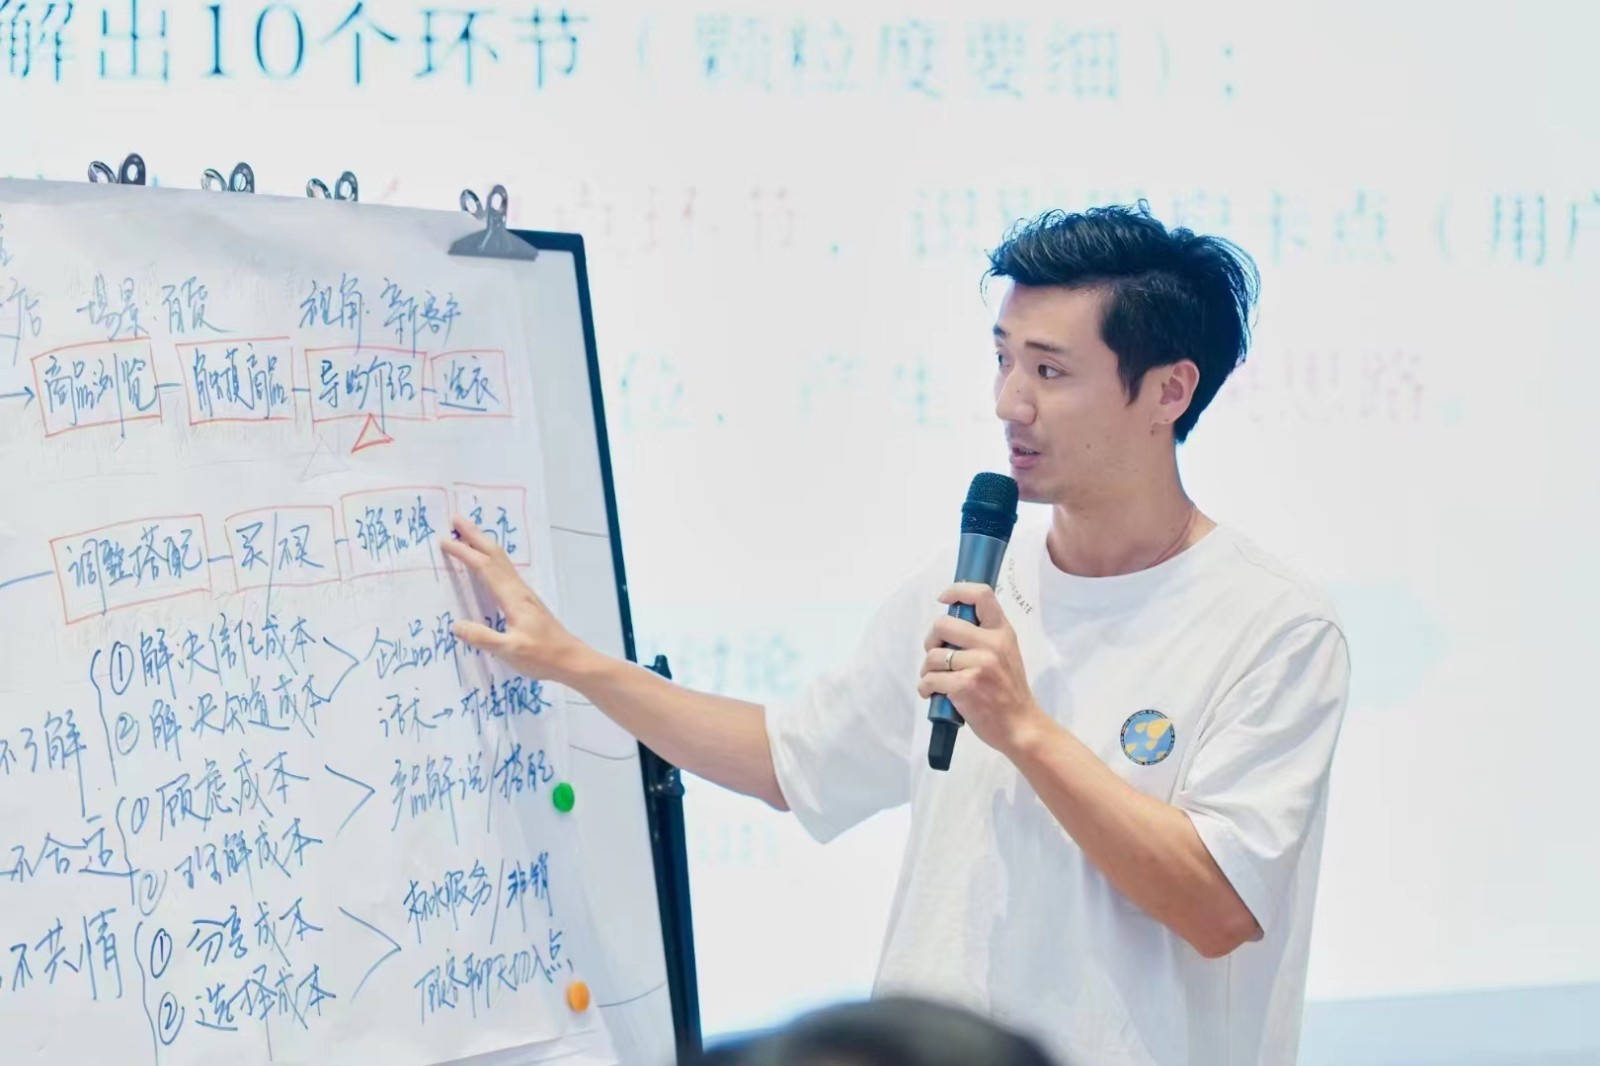 解出10个环节（颗粒度要细）：
点环节，识别用户卡点（用户
位，产生 思路。
讨论
店 场景：百货 视角：新客户
商品浏览 触摸商品 导购介绍 选衣
调整搭配 买/不买 了解品牌 离店
不了解
①解决信任成本
②解决知道成本
企业品牌
话术→对接顾客
不合适
①顾虑成本
②理解成本
产品解说/搭配
不共情
①分享成本
②选择成本
茶水服务/非销
顾客聊天切入点